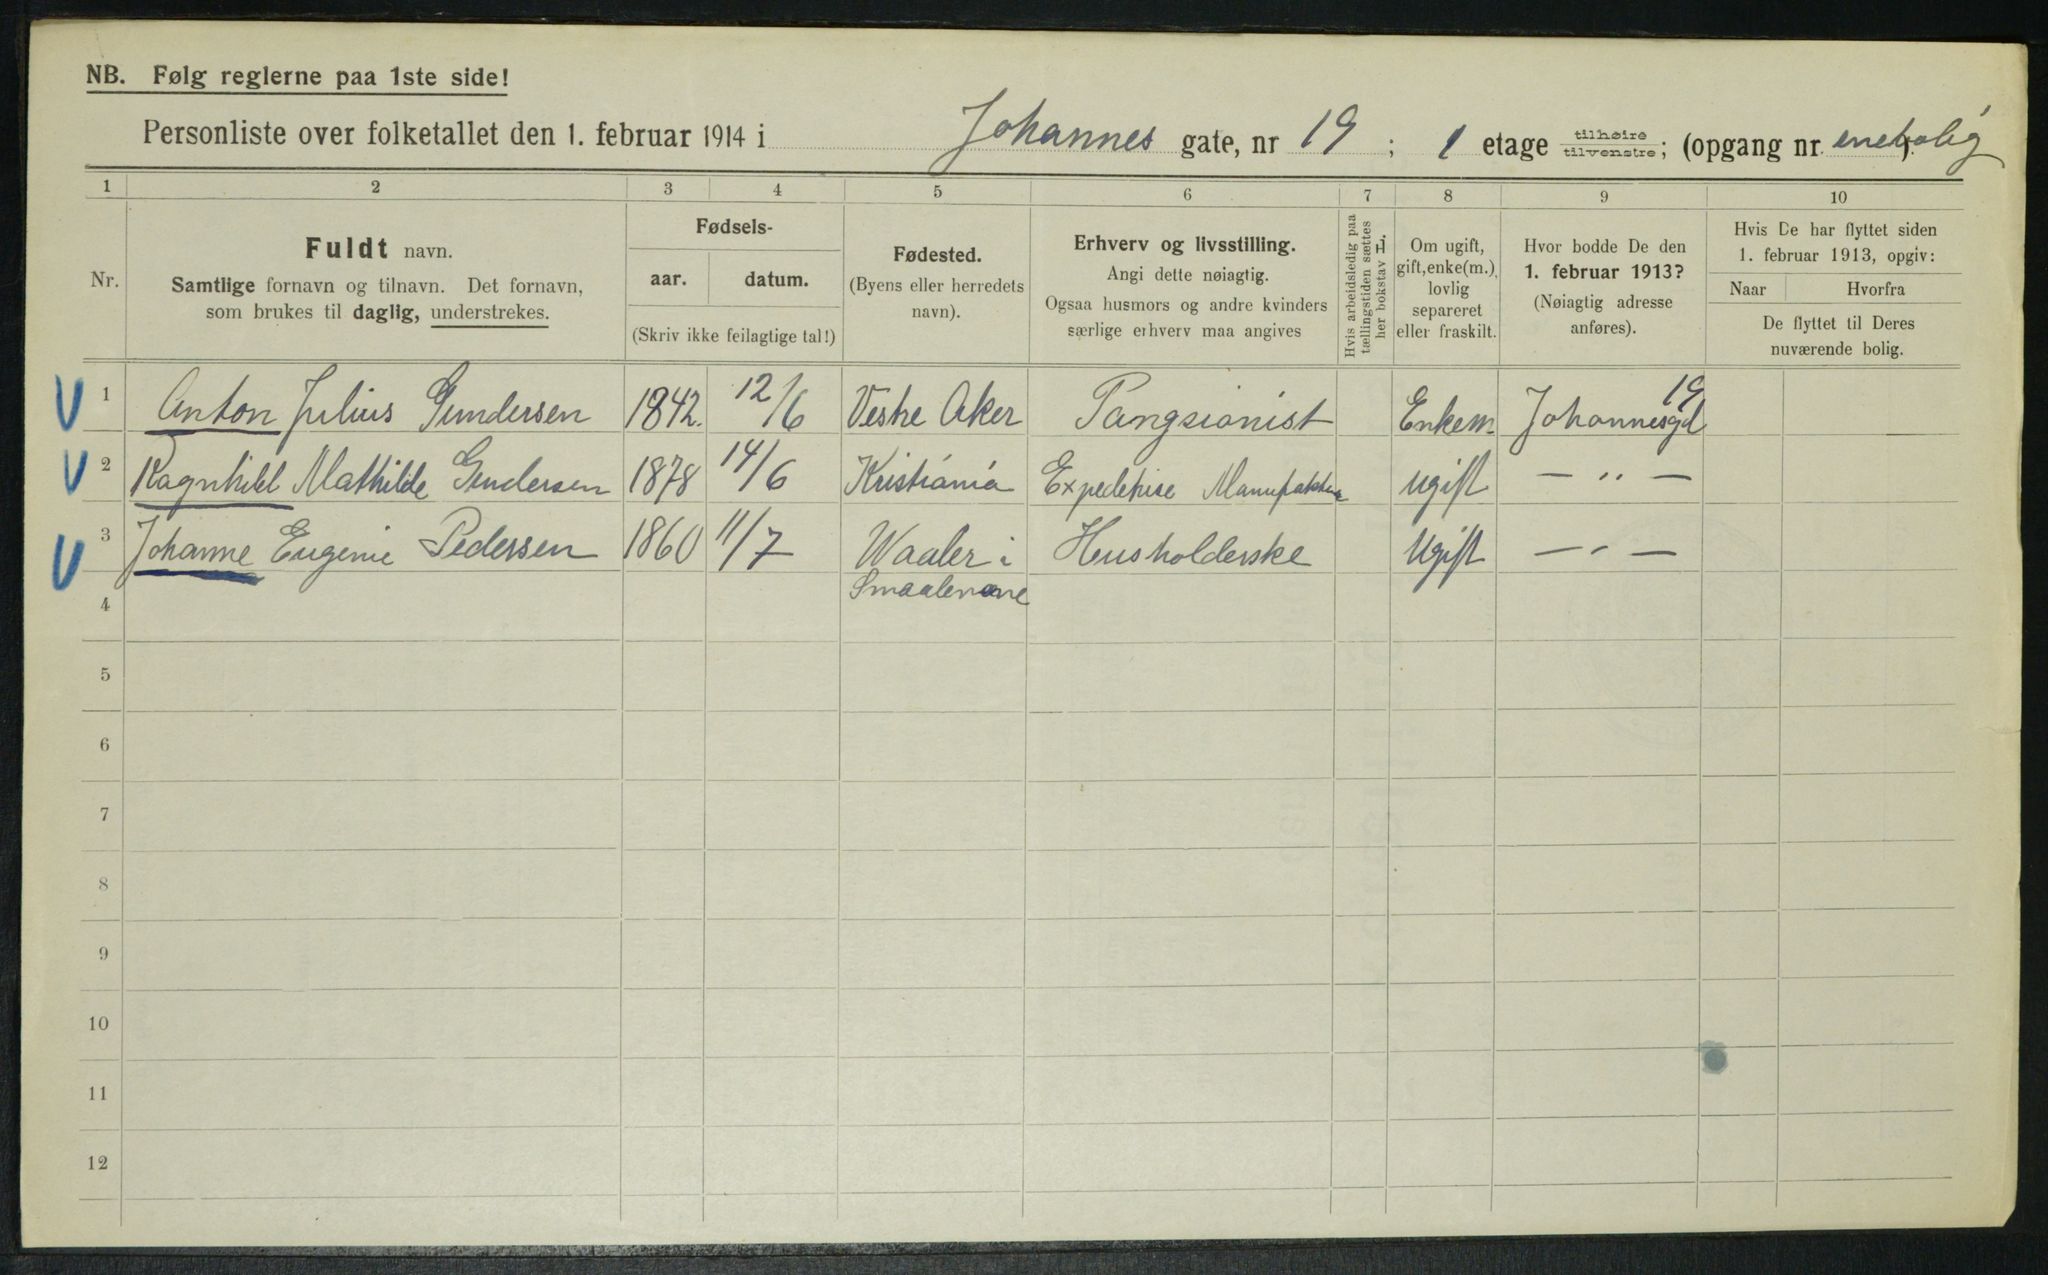 NB. Følg reglerne paa 1ste side!
Personliste over folketallet den 1. februar 1914 i Johannes gate, nr 19 ; 1 etage tilhøire tilvenstre; (opgang nr. enebolig).
1 2 3 4 5 6 7 8 9 10
Nr.
Fuldt navn.
Samtlige fornavn og tilnavn. Det fornavn,
som brukes til daglig, understrekes.
Fødsels-
aar. datum.
(Skriv ikke feilagtige tal!)
Fødested.
(Byens eller herredets
navn).
Erhverv og livsstilling.
Angi dette nøiagtig.
Ogsaa husmors og andre kvinders
særlige erhverv maa angives
Hvis arbeidsledig paa
tællingstiden sættes
her bokstav L.
Om ugift,
gift, enke(m.),
lovlig
separeret
eller fraskilt.
Hvor bodde De den
1. februar 1913?
(Nøiagtig adresse
anføres).
Hvis De har flyttet siden
1. februar 1913, opgiv:
Naar Hvorfra
De flyttet til Deres
nuværende bolig.
V 1 Anton Julius Gundersen 1842. 12/6 Vestre Aker Pangsionist Enkem. Johannesgd 19
V 2 Ragnhild Mathilde Gundersen 1878 14/6 Kristiania Expeditrise Manufaktur ugift — " —
V 3 Johanne Eugenie Pedersen 1860 11/7 Waaler i Husholderske Ugift — " —
Smaalenene
4
5
6
7
8
9
10
11
12